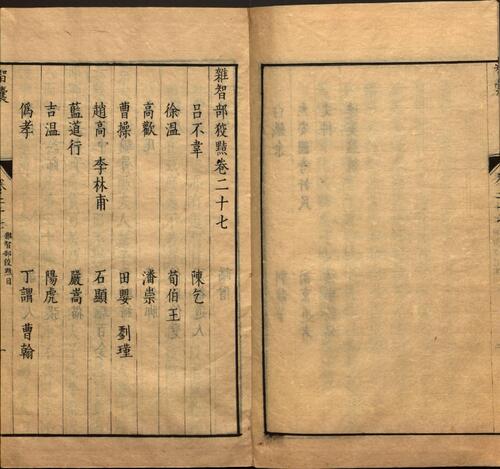 雜智部狡黠卷二十七
呂不韋 陳乞
徐溫 荀伯玉
高歡 潘崇
曹操 田嬰 劉瑾
趙高 李林甫 石顯
藍道行 嚴嵩
吉溫 陽虎
偽孝 丁謂 曹翰
智囊
雜智部狡黠目